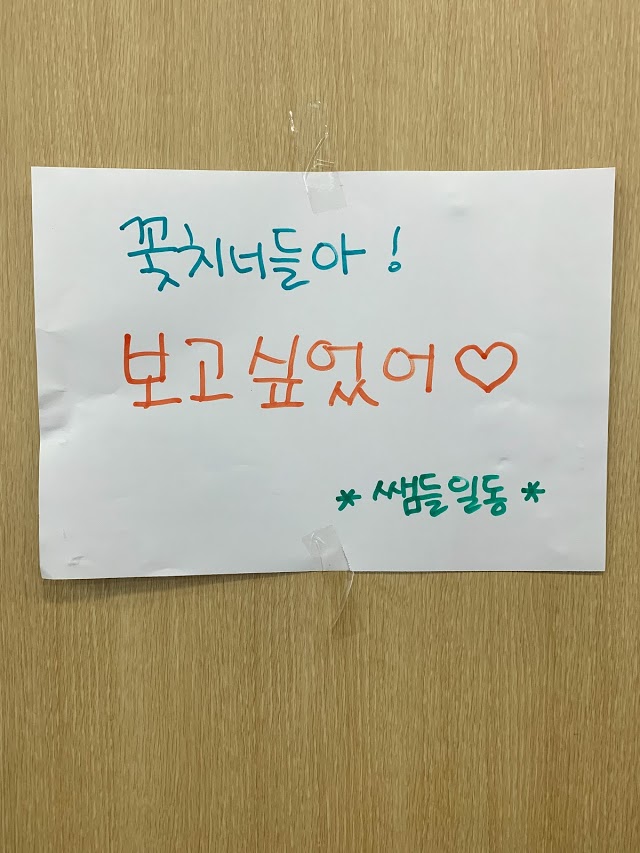 꽃치너들아!
보고싶었어♡
* 쌤들일동 *